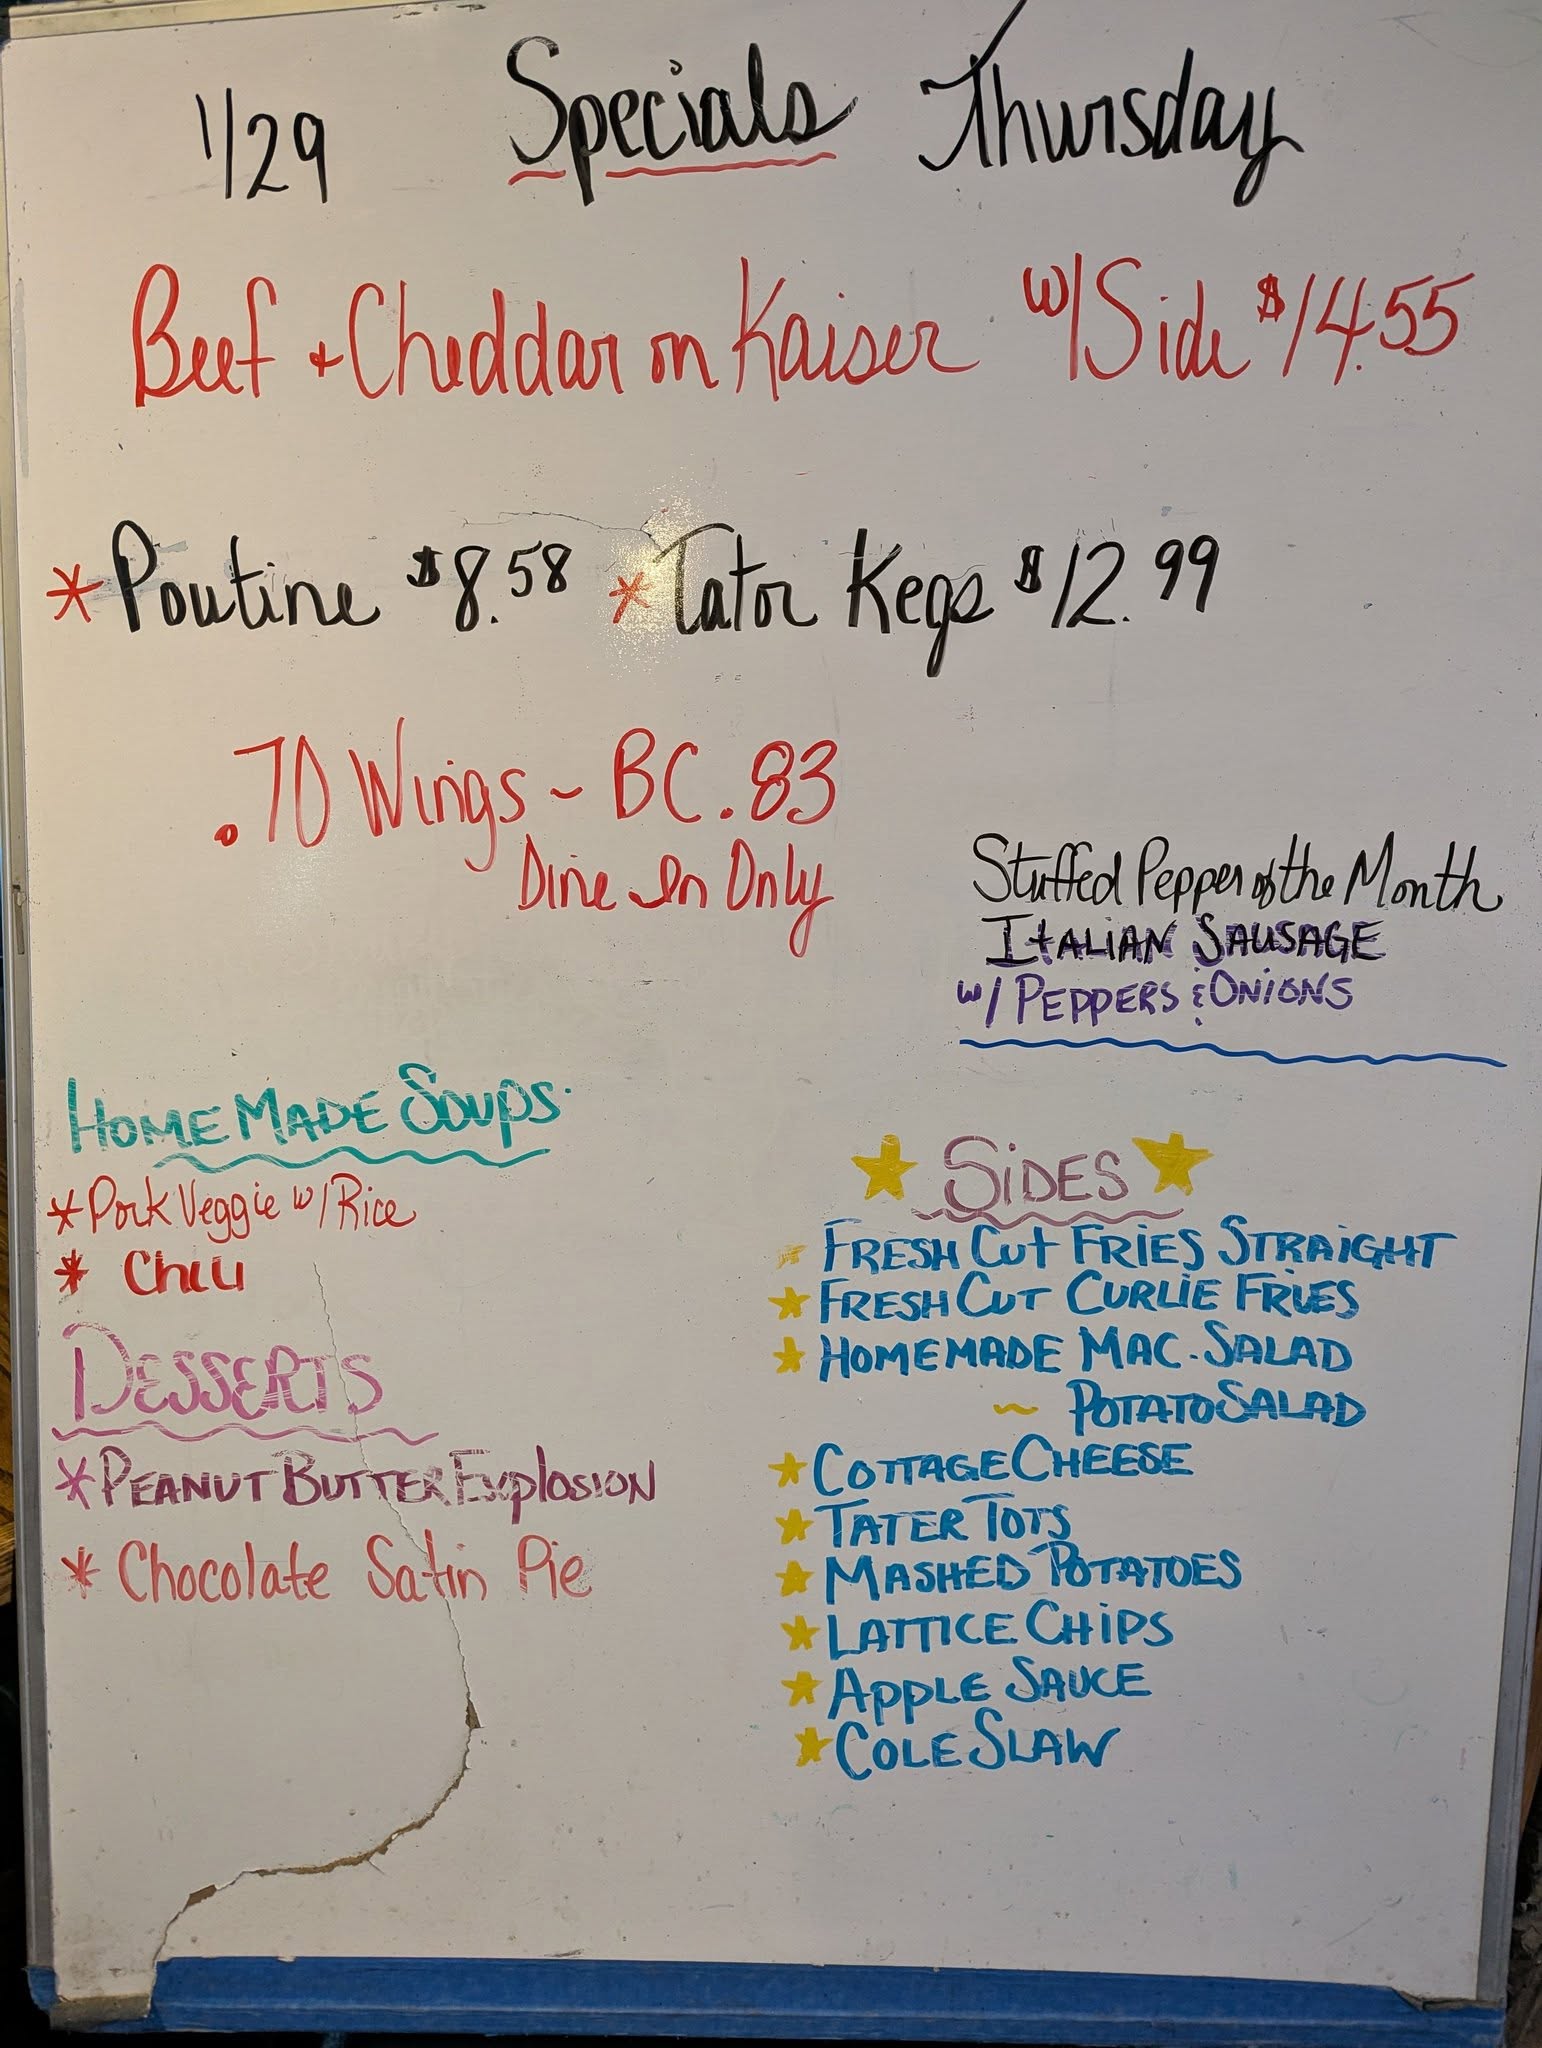 1/29 Specials Thursday
Beef + Cheddar on Kaiser w/ Side $14.55
* Poutine $8.58 * Tator Kegs $12.99
.70 Wings ~ BC .83
Dine In Only
Stuffed Pepper of the Month
ITALIAN SAUSAGE
w/ PEPPERS & ONIONS
HOMEMADE SOUPS
* Pork Veggie w/ Rice
* CHILI
DESSERTS
* PEANUT BUTTER EXplosION
* Chocolate Satin Pie
SIDES
FRESH CUT FRIES STRAIGHT
FRESH CUT CURLIE FRIES
HOMEMADE MAC. SALAD
~ POTATO SALAD
COTTAGE CHEESE
TATER TOTS
MASHED POTATOES
LATTICE CHIPS
APPLE SAUCE
COLE SLAW